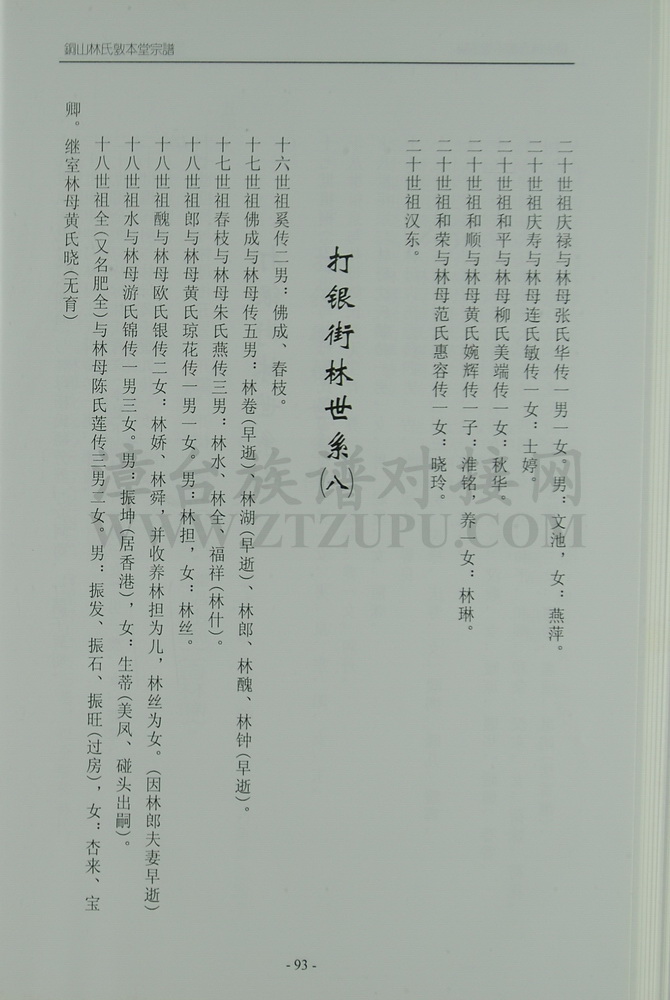 鎭山林氏敦本堂宗譜
二十世祖庆禄与林母张氏华传一男一女。男：文池，女：燕萍。
二十世祖庆寿与林母连氏敏传一女：士婷。
二十世祖和平与林母柳氏美端传一女：秋华。
二十世祖和顺与林母黄氏婉辉传一子：淮铭，养一女：林琳。
二十世祖和荣与林母范氏惠容传一女：晓玲。
二十世祖汉东。
打银街林世系(八)
十六世祖奚传二男：佛成、春枝。
十七世祖佛成与林母传五男：林卷(早逝)、林湖(早逝)、林郎、林醜、林钟(早逝)。
十七世祖春枝与林母朱氏燕传三男：林水、林全、福祥(林什)。
十八世祖郎与林母黄氏琼花传一男一女。男：林担，女：林丝。
十八世祖醜与林母欧氏银传二女：林娇、林舜，并收养林担为儿，林丝为女。(因林郎夫妻早逝)
十八世祖水与林母游氏锦传一男三女。男：振坤(居香港)，女：生蒂(美凤、碰头出嗣)。
十八世祖全(又名肥全)与林母陈氏莲传三男二女。男：振发、振石、振旺(过房)，女：杏来、宝
卿。继室林母黄氏晓(无育)
漳台族谱对接网
WWW.ZTZUPU.COM
- 93 -